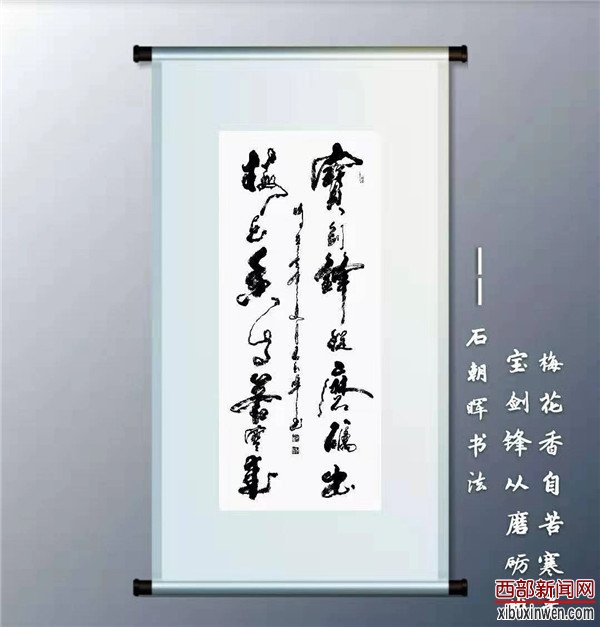 寶劍鋒從磨礪出
梅花香自苦寒來
梅花香自苦寒来
宝剑锋从磨砺出
——石朝晖书法
西部新闻网
xibuxinwen.com